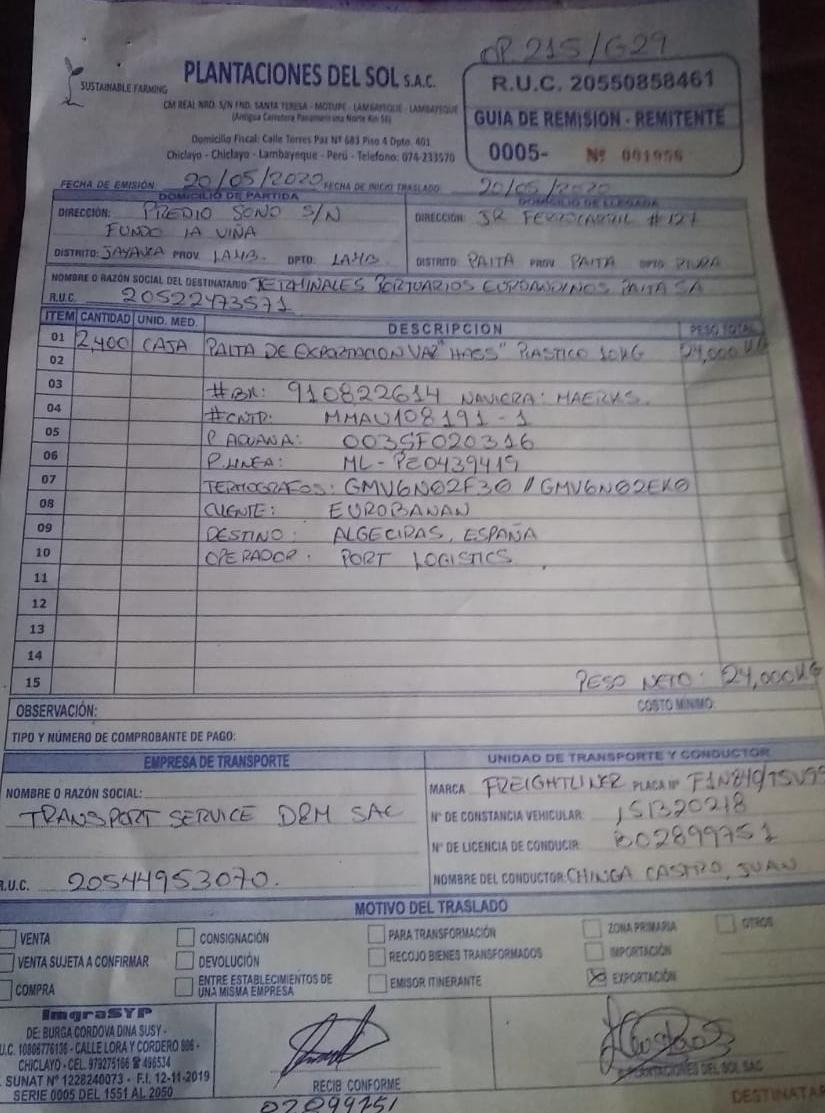 OP. 215/G29
SUSTAINABLE FARMING
PLANTACIONES DEL SOL S.A.C.
CM REAL NRO. S/N FND. SANTA TERESA - MOTUPE - LAMBAYEQUE - LAMBAYEQUE
(Antigua Carretera Panamericana Norte Km 56)
Domicilio Fiscal: Calle Torres Paz Nº 683 Piso 4 Dpto. 401
Chiclayo - Chiclayo - Lambayeque - Perú - Telefono: 074-233570
R.U.C. 20550858461
GUIA DE REMISION - REMITENTE
0005- Nº
FECHA DE EMISIÓN: 20/05/2020 FECHA DE INICIO TRASLADO: 20/05/2020
DOMICILIO DE PARTIDA DOMICILIO DE LLEGADA
DIRECCIÓN: PREDIO SONO S/N DIRECCIÓN: JR FERROCARRIL #127
FUNDO LA VIÑA
DISTRITO: JAYANCA PROV. LAMB. DPTO: LAMB. DISTRITO: PAITA PROV PAITA DPTO PIURA
NOMBRE O RAZÓN SOCIAL DEL DESTINATARIO: TERMINALES PORTUARIOS EUROANDINOS PAITA SA
R.U.C. 20522473571
ITEM CANTIDAD UNID. MED. DESCRIPCION PESO TOTAL
01 2,400 CAJA PALTA DE EXPORTACION VAR "HASS" PLASTICO 10KG 24,000 KG
02
03 #BK: 910822614 NAVIERA: MAERKS.
04 #CNTR: MMAU108191-1
05 P. ADUANA: 003SF020316
06 P. LINEA: ML-PE0439419
07 TERMOGRAFOS: GMV6N02F30 // GMV6N02EK0
08 CLIENTE: EUROBANAN
09 DESTINO: ALGECIRAS, ESPAÑA
10 OPERADOR: PORT LOGISTICS.
11
12
13
14
15 PESO NETO: 24,000KG
OBSERVACIÓN: COSTO MÍNIMO:
TIPO Y NÚMERO DE COMPROBANTE DE PAGO:
EMPRESA DE TRANSPORTE UNIDAD DE TRANSPORTE Y CONDUCTOR
NOMBRE O RAZÓN SOCIAL: MARCA FREIGHTLINER PLACA Nº F1N840/
TRANSPORT SERVICE D&M SAC Nº DE CONSTANCIA VEHICULAR: 151320218
Nº DE LICENCIA DE CONDUCIR: B02899751
R.U.C. 20544953070. NOMBRE DEL CONDUCTOR: CHINGA CASTRO, JUAN
MOTIVO DEL TRASLADO
VENTA CONSIGNACIÓN PARA TRANSFORMACIÓN ZONA PRIMARIA OTROS
VENTA SUJETA A CONFIRMAR DEVOLUCIÓN RECOJO BIENES TRANSFORMADOS IMPORTACIÓN
COMPRA ENTRE ESTABLECIMIENTOS DE UNA MISMA EMPRESA EMISOR ITINERANTE EXPORTACIÓN
ImgraSYP
DE: BURGA CORDOVA DINA SUSY -
U.C. 10806776136 - CALLE LORA Y CORDERO 806 -
CHICLAYO - CEL. 979275166 ☎ 496534
SUNAT Nº 1228240073 - F.I. 12-11-2019
SERIE 0005 DEL 1551 AL 2050
RECIB CONFORME
PLANTACIONES DEL SOL SAC
DESTINATAR